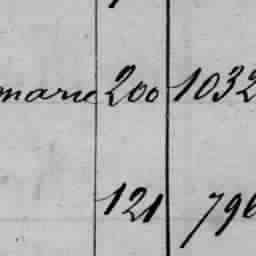 marie 200 1032
121 796